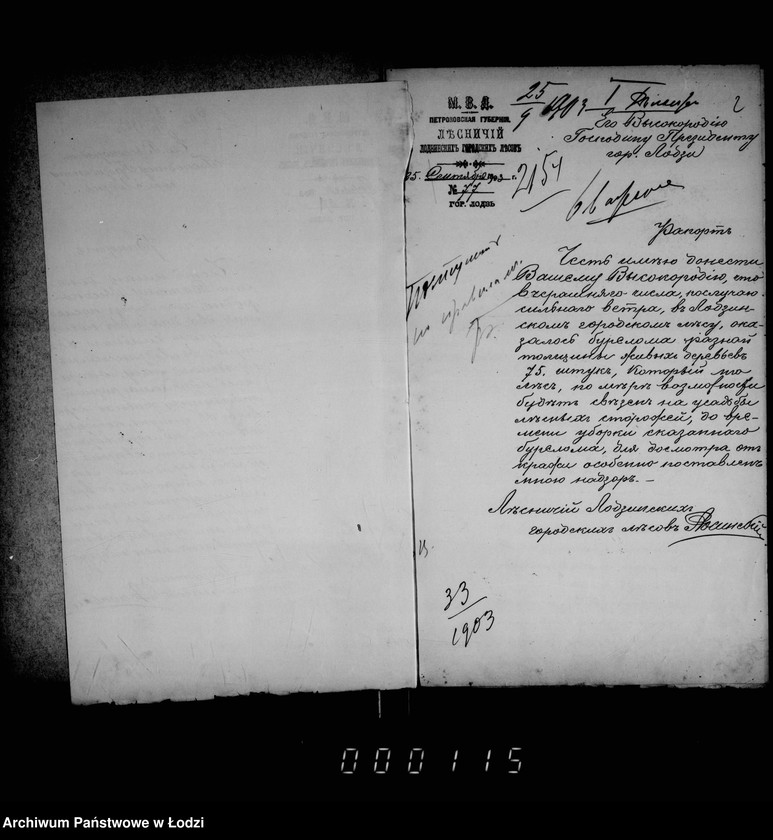 М. В. Д.
ПЕТРОКОВСКАЯ ГУБЕРНІЯ.
ЛѢСНИЧІЙ
ЛОДЗИНСКИХЪ ГОРОДСКИХЪ ЛѢСОВЪ
25. Сентября 1903 г.
№ 77
ГОР. ЛОДЗЬ
25/9 1903 I
2
2154
Его Высокородію
Господину Президенту
гор. Лодзи
Рапортъ
Честь имѣю донести
Вашему Высокородію, что
вчерашняго числа, по случаю
сильнаго ветра, въ Лодзин-
скомъ городскомъ лѣсу, ока-
залось бурелома разной
толщины живыхъ деревьевъ
75. штукъ, который по
лѣсъ, по мѣрѣ возможности
будетъ свѣзенъ на усадьбы
лѣсныхъ сторожей, до вре-
мени уборки сказаннаго
бурелома, для досмотра отъ
кражи особенно поставленъ
мною надзоръ. —
Лѣсничій Лодзинскихъ
городскихъ лѣсовъ
33/1903
000115
Archiwum Państwowe w Łodzi